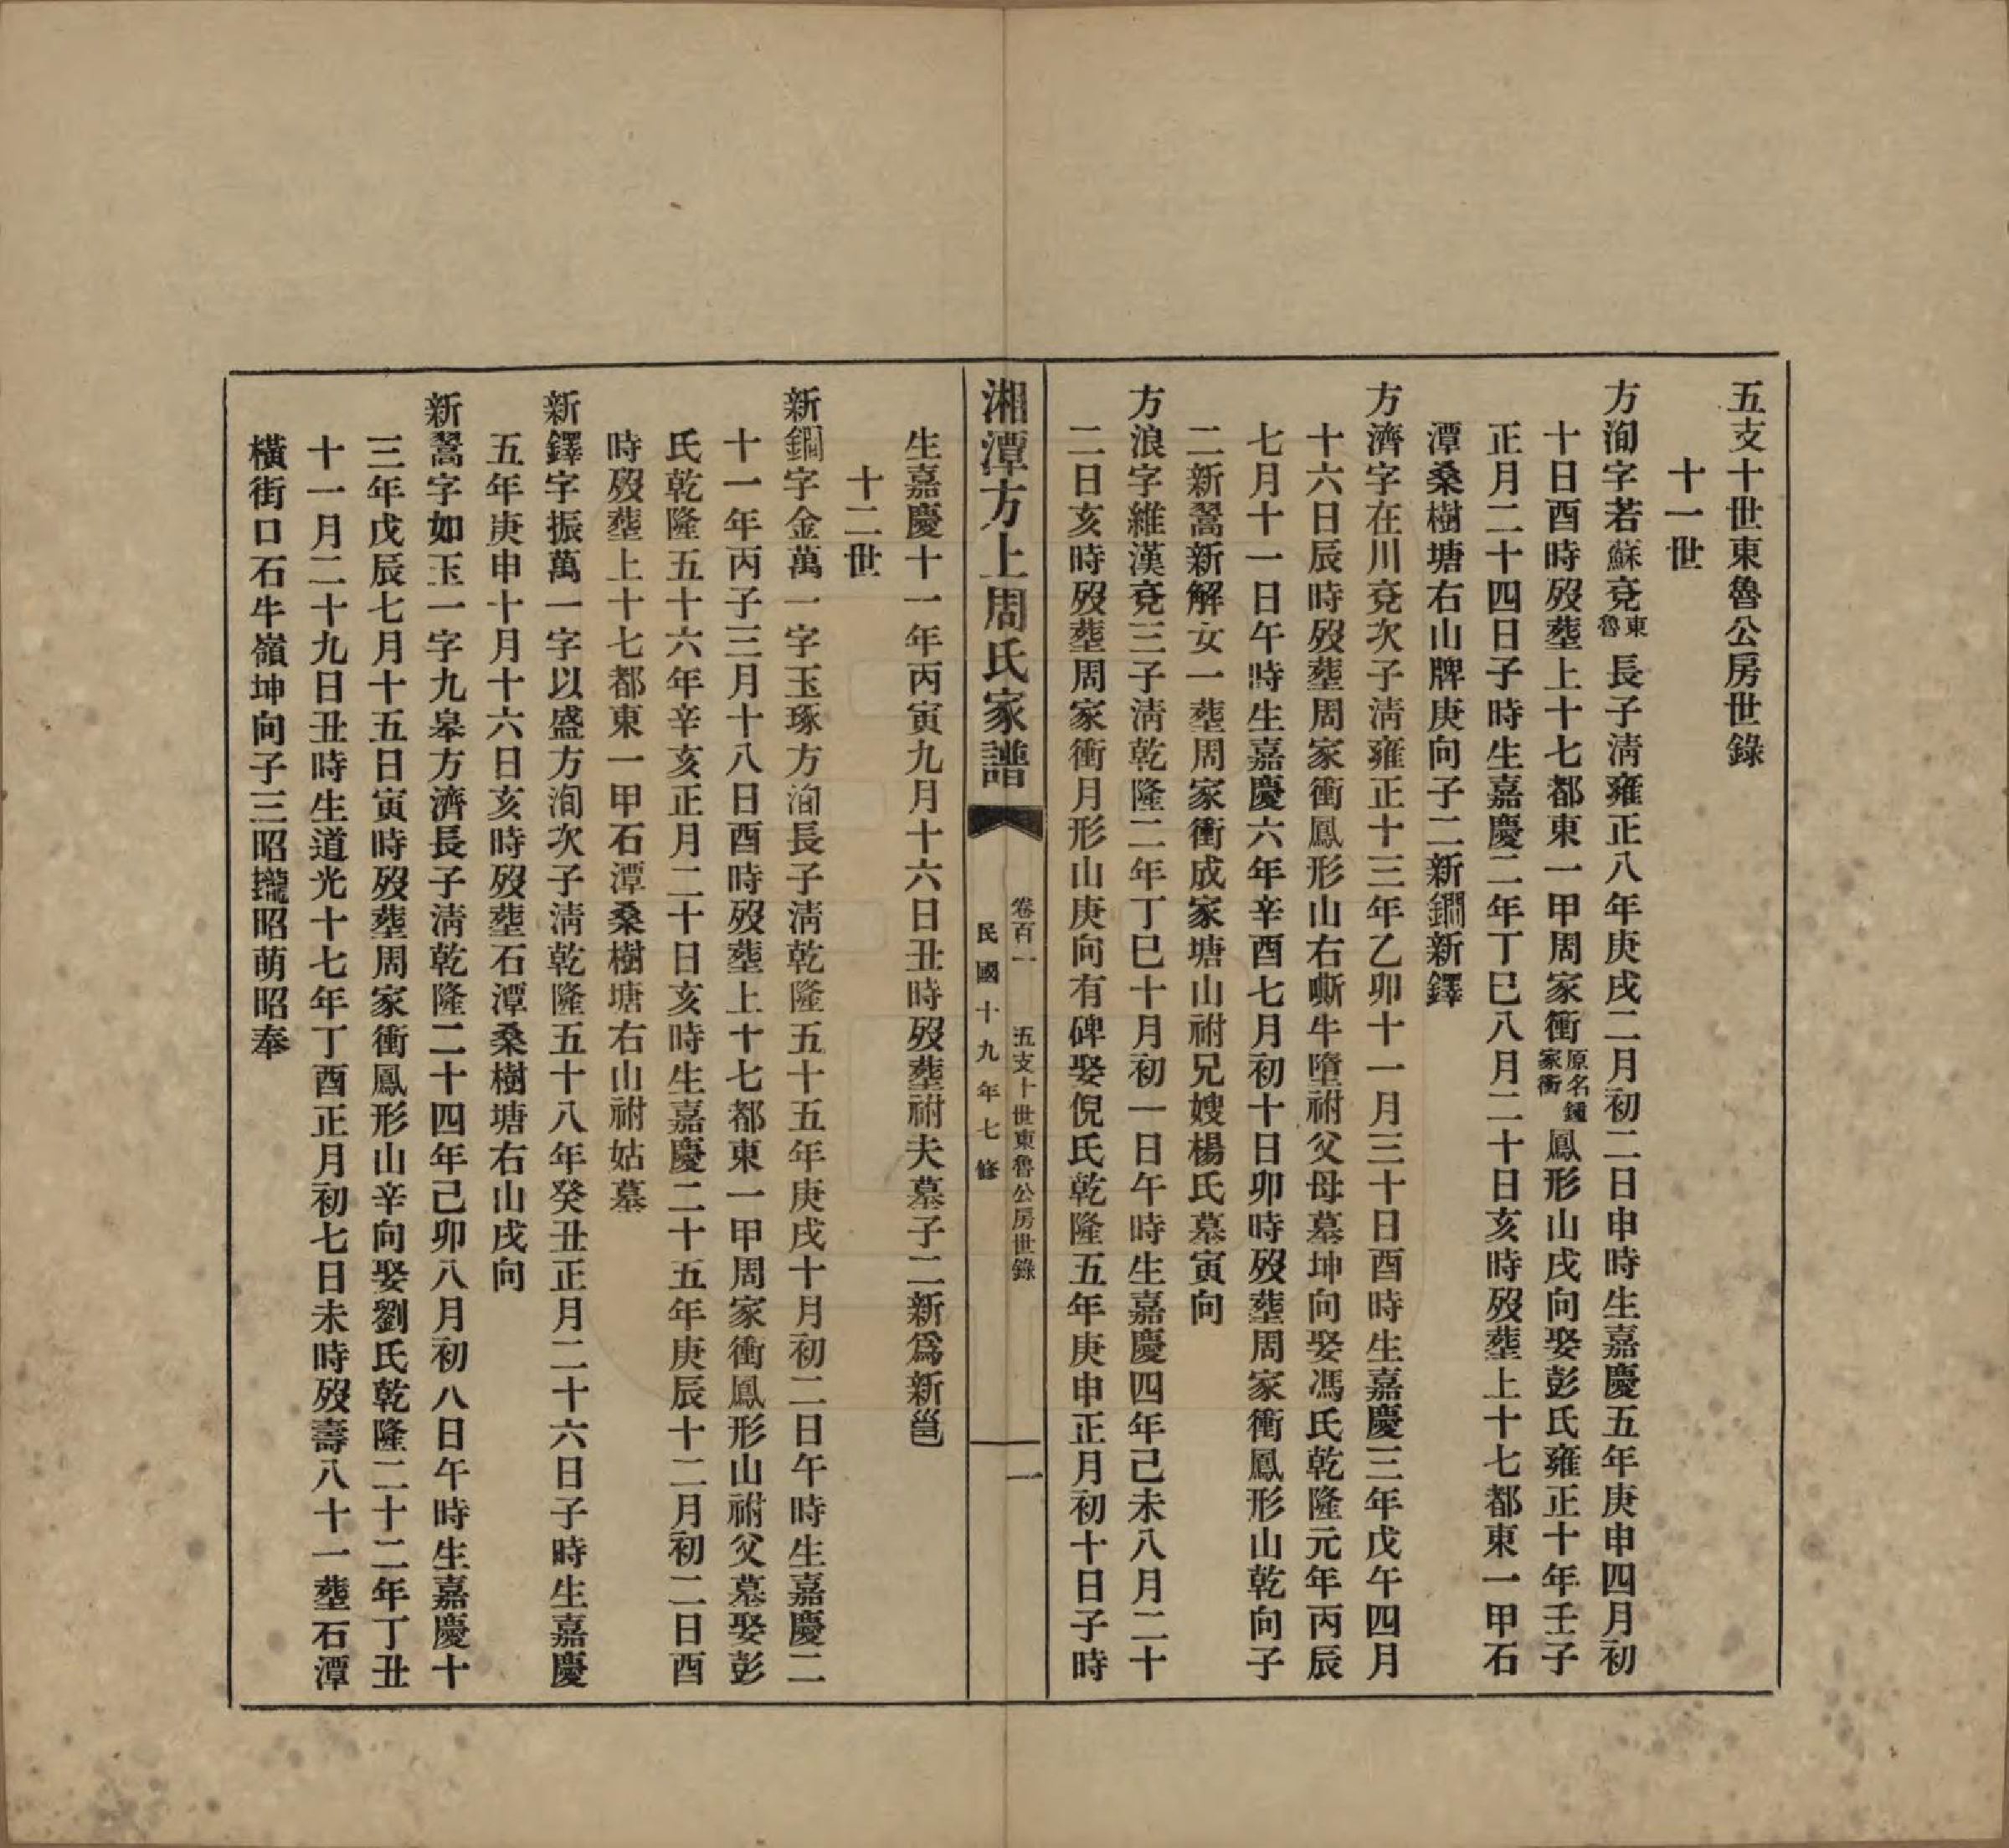 五支十世東魯公房世錄
十一世
方洵字若蘇兗東魯長子淸雍正八年庚戌二月初二日申時生嘉慶五年庚申四月初
十日酉時歿塟上十七都東一甲周家衝原名鍾家衝鳳形山戌向娶彭氏雍正十年壬子
正月二十四日子時生嘉慶二年丁巳八月二十日亥時歿塟上十七都東一甲石
潭桑樹塘右山牌庚向子二新鐧新鐸
方濟字在川兗次子淸雍正十三年乙卯十一月三十日酉時生嘉慶三年戊午四月
十六日辰時歿塟周家衝鳳形山右嘶牛墮祔父母墓坤向娶馮氏乾隆元年丙辰
七月十一日午時生嘉慶六年辛酉七月初十日卯時歿塟周家衝鳳形山乾向子
二新翯新解女一塟周家衝成家塘山祔兄嫂楊氏墓寅向
方浪字維漢兗三子淸乾隆二年丁巳十月初一日午時生嘉慶四年己未八月二十
二日亥時歿塟周家衝月形山庚向有碑娶倪氏乾隆五年庚申正月初十日子時
湘潭方上周氏家譜
卷百一 五支十世東魯公房世錄 一
民國十九年七修
生嘉慶十一年丙寅九月十六日丑時歿塟祔夫墓子二新爲新邕
十二世
新鐧字金萬一字玉琢方洵長子淸乾隆五十五年庚戌十月初二日午時生嘉慶二
十一年丙子三月十八日酉時歿塟上十七都東一甲周家衝鳳形山祔父墓娶彭
氏乾隆五十六年辛亥正月二十日亥時生嘉慶二十五年庚辰十二月初二日酉
時歿塟上十七都東一甲石潭桑樹塘右山祔姑墓
新鐸字振萬一字以盛方洵次子淸乾隆五十八年癸丑正月二十六日子時生嘉慶
五年庚申十月十六日亥時歿塟石潭桑樹塘右山戌向
新翯字如玉一字九皋方濟長子淸乾隆二十四年己卯八月初八日午時生嘉慶十
三年戊辰七月十五日寅時歿塟周家衝鳳形山辛向娶劉氏乾隆二十二年丁丑
十一月二十九日丑時生道光十七年丁酉正月初七日未時歿壽八十一塟石潭
橫街口石牛嶺坤向子三昭攏昭萌昭奉